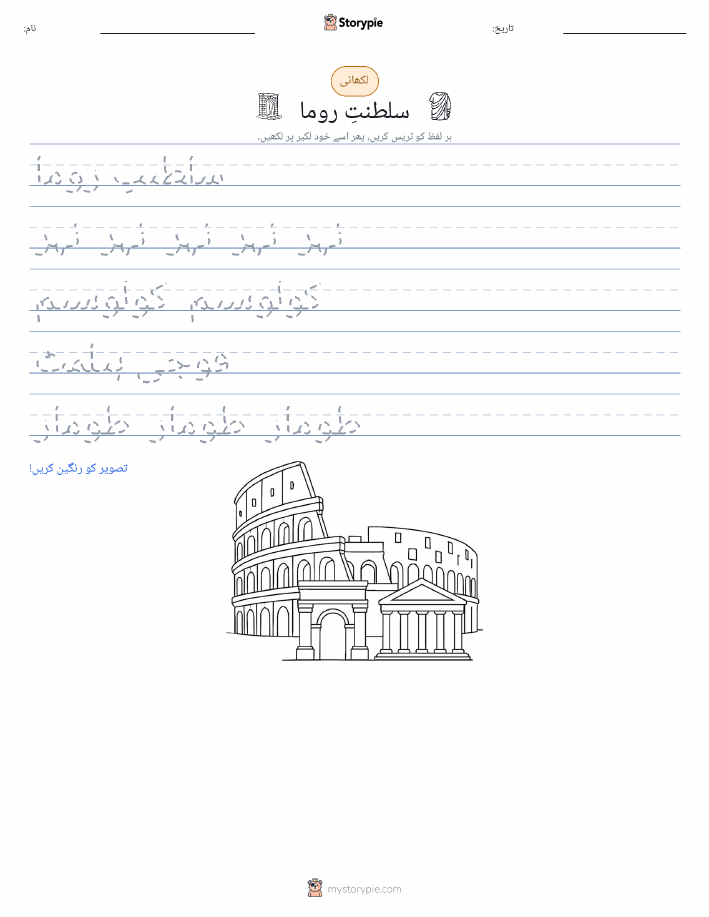 نام:
Storypie
تاریخ:
لکھائی
سلطنتِ روما
ہر لفظ کو ٹریس کریں، پھر اسے خود لکیر پر لکھیں۔
سلطنتِ روما
نہر نہر نہر نہر نہر
کولوسیم کولوسیم
فوجی ہیلمٹ
طومار طومار طومار
تصویر کو رنگین کریں!
mystorypie.com